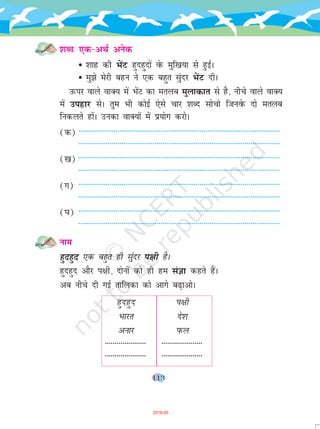 शब्द एक-अर्थ अनेक
• शाह की भेंट हुदहुदों के मुखिया से हुई।
• मुझे मेरी बहन ने एक बहुत सुंदर भेंट दी।
ऊपर वाले वाक्य में भेंट का मतलब मुलाकात से है, नीचे वाले वाक्य
में उपहार से। तुम भी कोई ऐसे चार शब्द सोचो जिनके दो मतलब
निकलते हों। उनका वाक्यों में प्रयोग करो।
(क)
(ख)
(ग)
(घ)
नाम
हुदहुद एक बहुत ही सुंदर पक्षी है।
हुदहुद और पक्षी, दोनों को ही हम संज्ञा कहते हैं।
अब नीचे दी गई तालिका को आगे बढ़ाओ।
हुदहुद पक्षी
भारत देश
अनार फल
..................... .....................
..................... .....................
113
2019-20
© NCERT
not to be republished